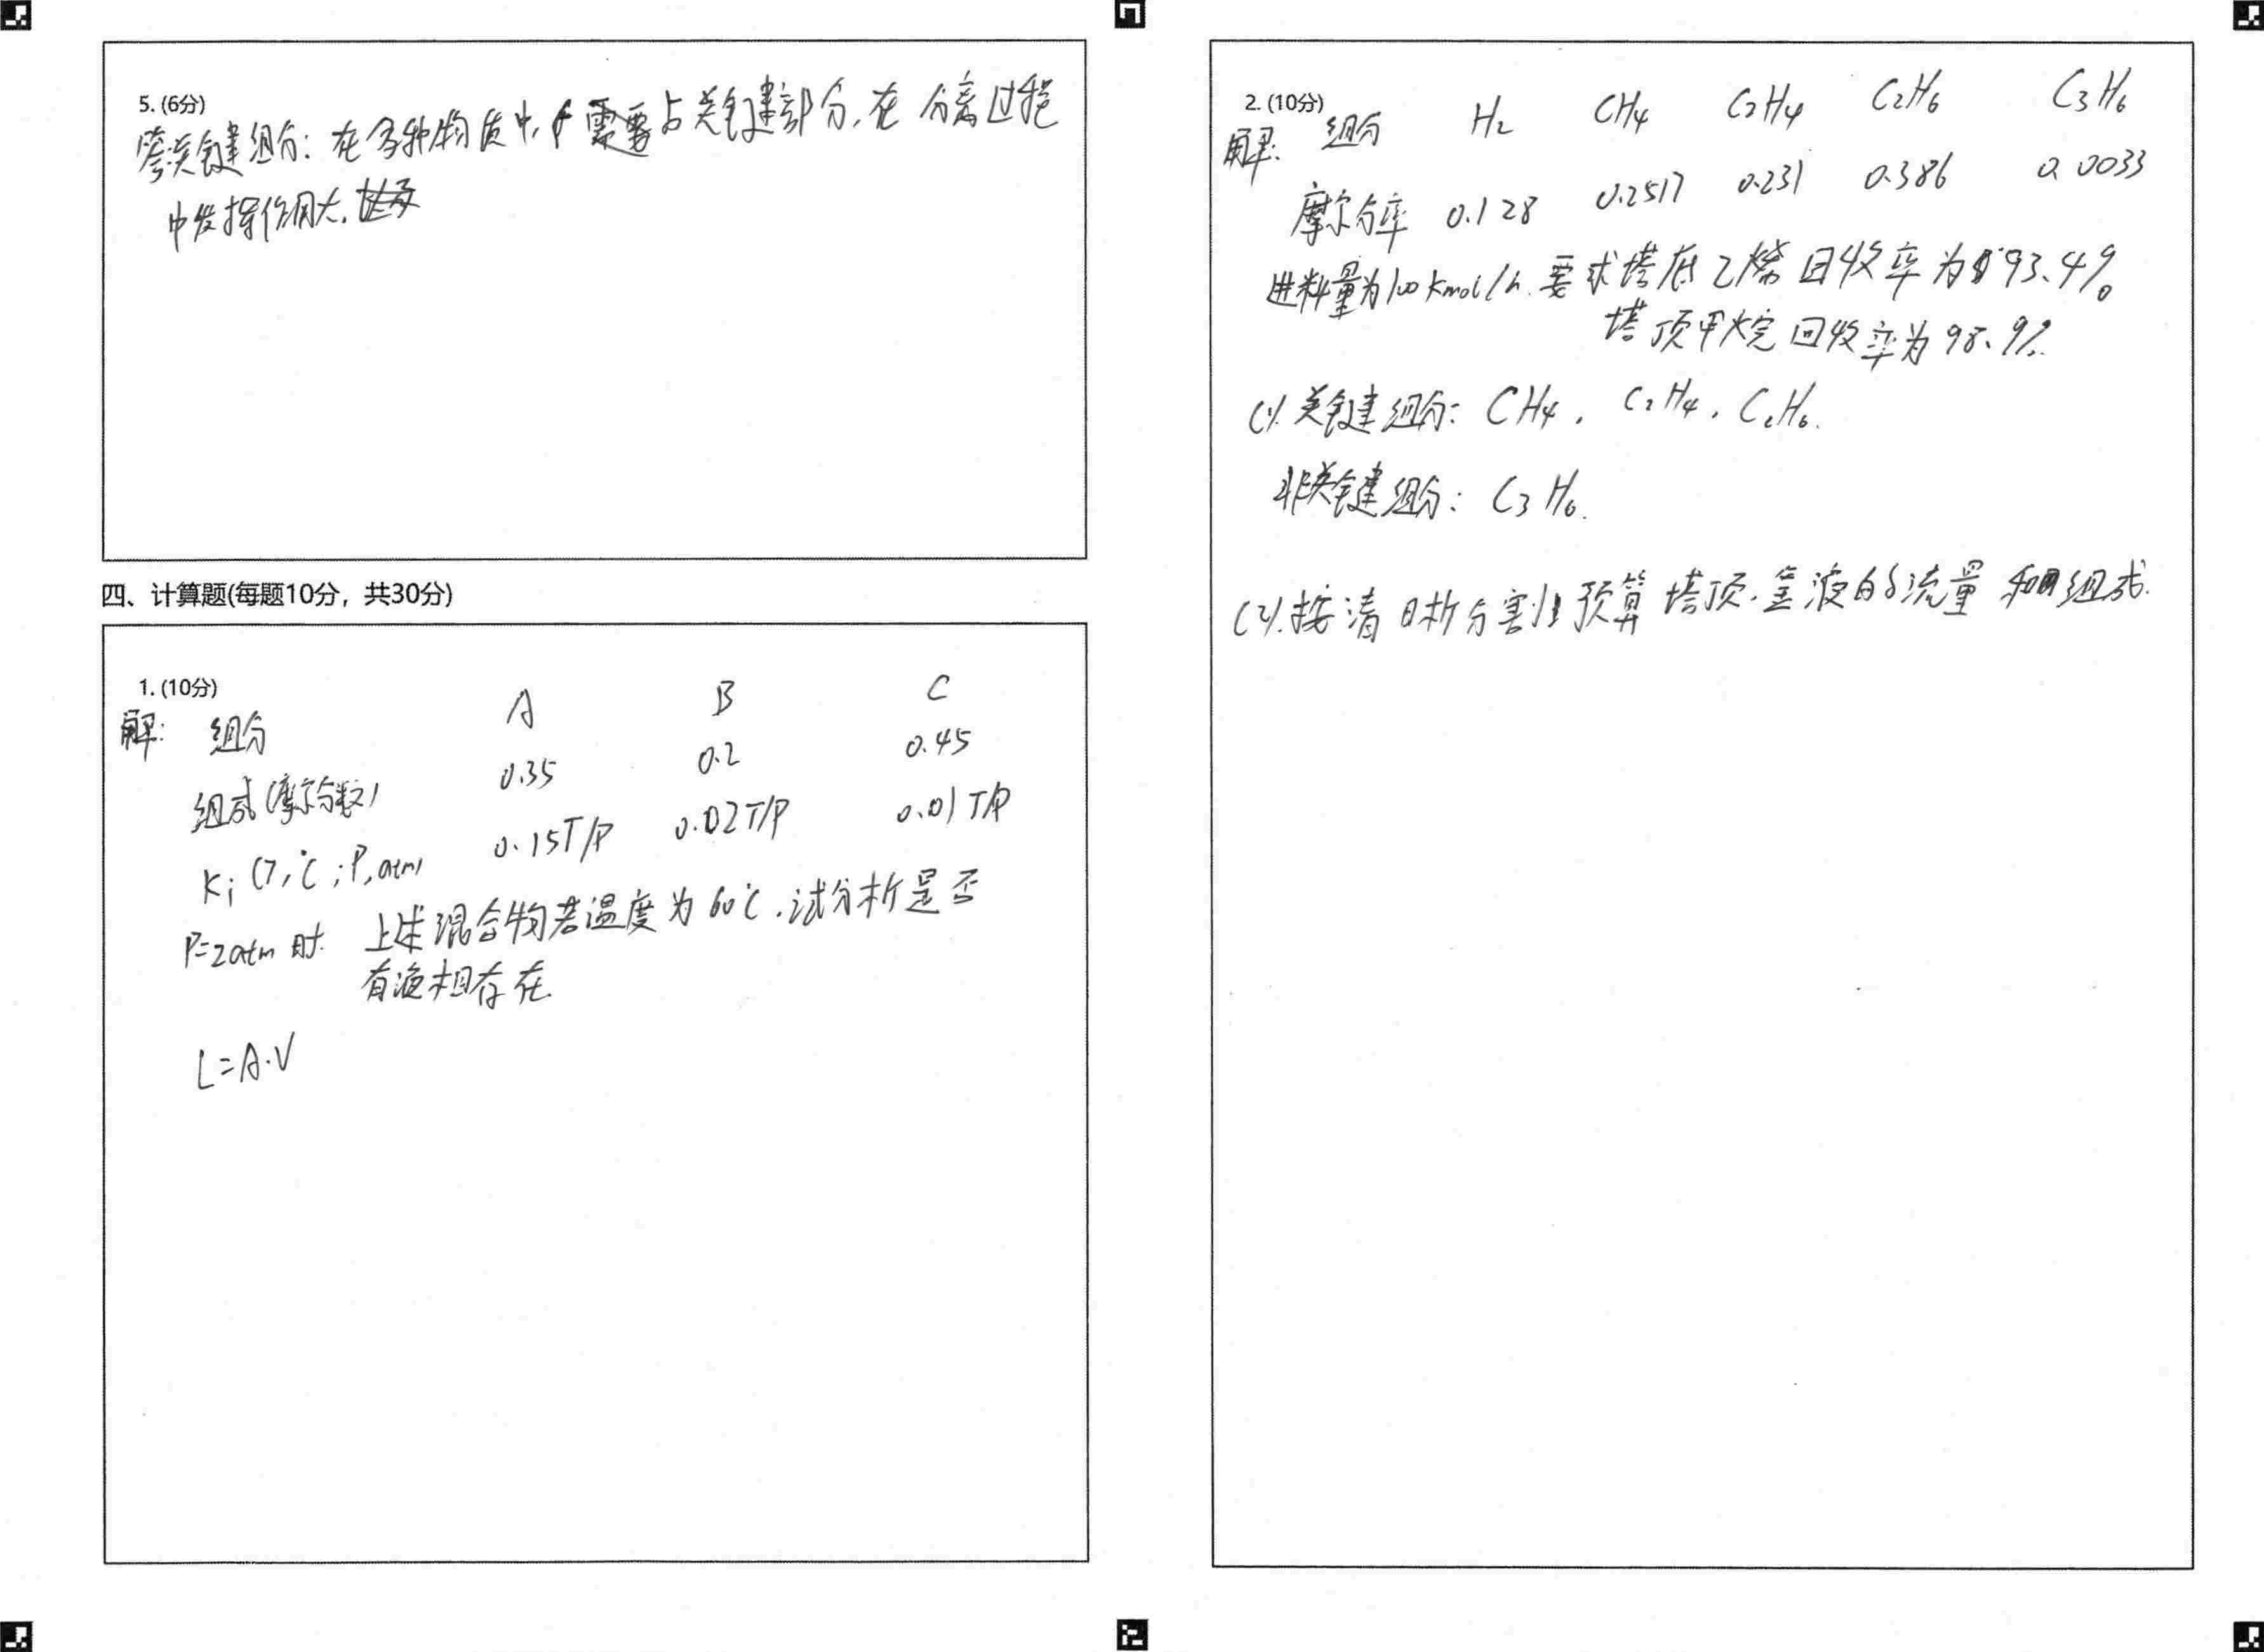 5. (6分)
答:关键组分: 在多种物质中,需要占关键部分,在分离过程
中发挥作用大.
四、计算题(每题10分，共30分)
1. (10分)
解: 组分 A B C
组成(摩尔分数) 0.35 0.2 0.45
Ki (T,℃;P,atm) 0.15T/P 0.02T/P 0.01T/P
P=2atm时. 上述混合物若温度为60℃.试分析是否
有液相存在.
L=A·V
2. (10分)
解: 组分 H2 CH4 C2H4 C2H6 C3H6
摩尔分率 0.128 0.2517 0.231 0.386 0.0033
进料量为100kmol/h.要求塔底乙烯回收率为93.4%
塔顶甲烷回收率为98.9%.
(1).关键组分: CH4, C2H4, C2H6.
非关键组分: C3H6.
(2).按清晰分割预算塔顶.釜液的流量和组成.